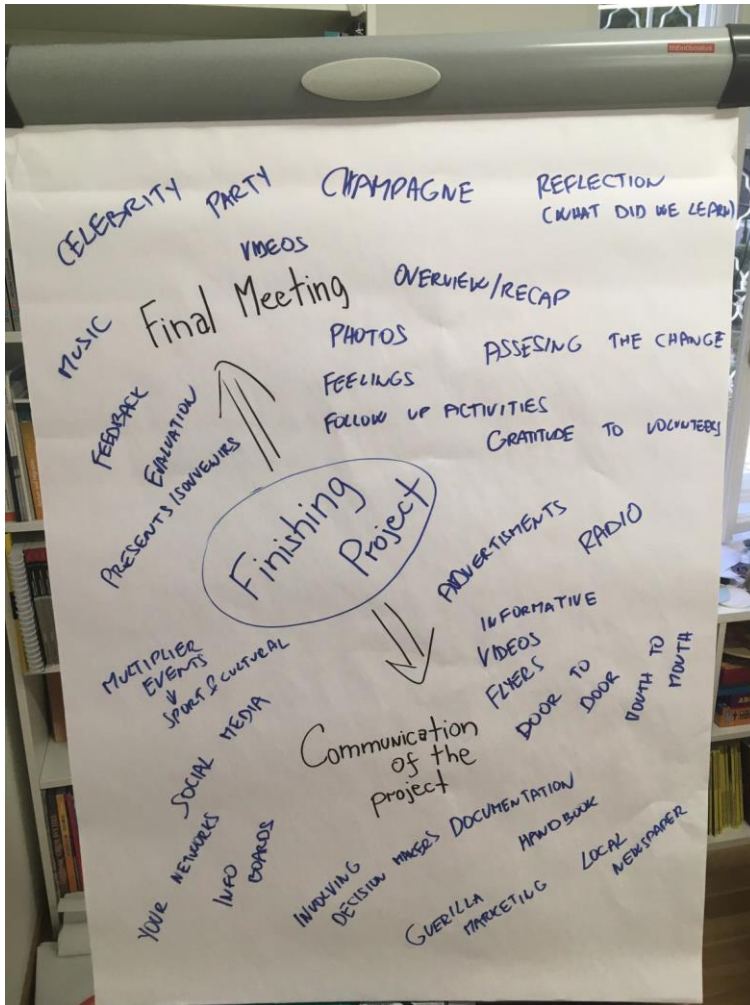 CELEBRITY
PARTY
CHAMPAGNE
REFLECTION
(WHAT DID WE LEARN)
VIDEOS
Final Meeting
OVERVIEW/RECAP
MUSIC
PHOTOS
ASSESING THE CHANGE
FEELINGS
FOLLOW UP ACTIVITIES
GRATITUDE TO VOLUNTEERS
FEEDBACK
EVALUATION
PRESENTS/SOUVENIRS
Finishing
Project
ADVERTISMENTS
RADIO
INFORMATIVE
VIDEOS
FLYERS
DOOR TO
DOOR
MOUTH TO
MOUTH
MULTIPLIER
EVENTS
SPORT & CULTURAL
SOCIAL MEDIA
Communication
of the
project
YOUR NETWORKS
INFO
BOARDS
INVOLVING
DECISION MAKERS
DOCUMENTATION
HANDBOOK
GUERILLA
MARKETING
LOCAL
NEWSPAPER